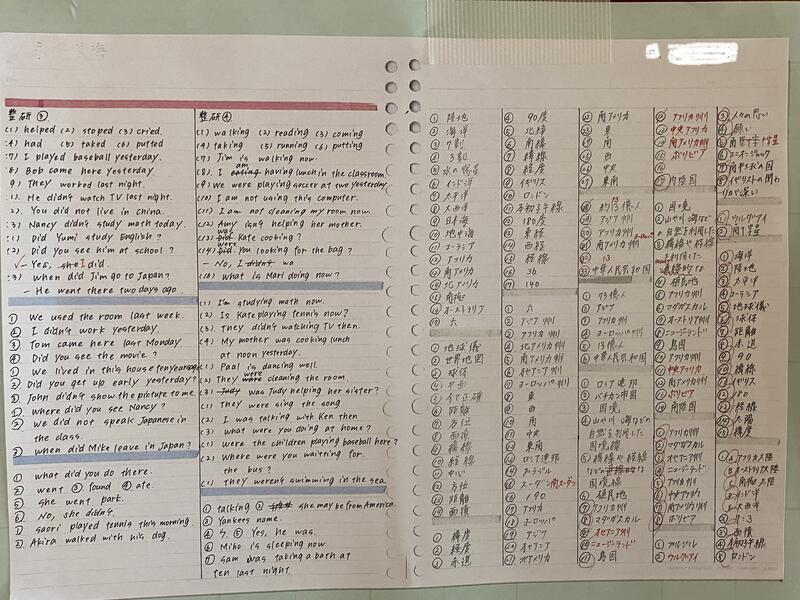 整研③
(1) helped (2) stoped (3) cried.
(4) had (5) taked (6) putted
(7) I played baseball yesterday.
(8) Bob came here yesterday.
(9) They worked last night.
(1). He didn't watch TV last night.
(2). You did not live in china.
(3) Nancy didn't study math today.
(1) Did Yumi study English?
(2) Did you see him at school?
Yes, I did.
(3) When did Jim go to Japan?
- He went there two days ago.
① We used the room last week.
② I didn't work yesterday.
③ Tom came here last Monday.
④ Did you see the movie?
① We lived in this house ten years ago
② Did you get up early yesterday?
③ John didn't show the picture to me.
① Where did you see Nancy?
② We did not speak Japanese in
the class.
③ when did Mike leave in Japan?
① what did you do there.
② went ③ found ④ ate.
① she went park.
② No, she didn't.
① Saori played tennis this morning.
② Akira walked with his dog.
整研④
(1) walking (2) reading (3) coming
(4) taking (5) running (6) putting
(7) Jim is walking now.
(8). I am having lunch in the classroom
(9) We were playing soccer at two yesterday
(10) I am not using this computer.
(11) I am not cleaning my room now.
(12) Amy isn't helping her mother.
(13) was Kate cooking?
(14) were you looking for the bag?
- No, I
(15) what is Mari doing now?
(1). I'm studying math now.
(2). Is Kate playing tennis now?
(3). They didn't watching TV then.
(4) My mother was cooking lunch
at noon yesterday.
(1) Paul is dancing well.
(2) They were cleaning the room.
(3) was Judy helping her sister?
(1) They were sing the song
(2) I was talking with Ken then
(3) what were you doing at home?
(1) were the children playing baseball here?
(2) Where were you waitting for
the bus?
(1) they weren't swimming in the sea
① talking ② she may be from America.
③ Yankees name.
④ ウ. ⑤ Yes, he was.
⑥ Miho is sleeping now
⑦ Sam was taking a bath at
ten last night.
① 陸地
② 海洋
③ 7割
④ 3割
⑤ 水の惑星
⑥ インド洋
⑦ 太平洋
⑧ 大西洋
⑨ 日本海
⑩ 地中海
⑪ ユーラシア
⑫ アフリカ
⑬ 南アメリカ
⑭ 北アメリカ
⑮ 南極
⑯ オーストラリア
⑰ 六
① 地球儀
② 世界地図
③ 球体
④ 平面
⑤ 全て正確
⑥ 距離
⑦ 方位
⑧ 面積
⑨ 緯線
⑩ 経線
⑪ 中心
⑫ 方位
⑬ 距離
⑭ 面積
① 緯度
② 経度
③ 赤道
④ 90度
⑤ 北緯
⑥ 南緯
⑦ 緯線
⑧ 経度
⑨ イギリス
⑩ ロンドン
⑪ 本初子午線
⑫ 180度
⑬ 東経
⑭ 西経
⑮ 経線
⑯ 36
⑰ 140
① 六
② アジア州
③ アフリカ州
④ ヨーロッパ州
⑤ 南アメリカ州
⑥ オセアニア州
⑦ ヨーロッパ州
⑧ 東
⑨ 西
⑩ 南
⑪ 中央
⑫ 東南
⑬ ロシア連邦
⑭ ブラジル
⑮ スーダン 南スーダン
⑯ 190
⑰ アフリカ
⑱ ヨーロッパ
⑲ アジア
⑳ オセアニア
㉑ 北アメリカ
㉒ 南アメリカ
東
南
西
中央
東南
約73億人
アジア州
アフリカ州
南アメリカ州
13
中華人民共和国
① 73億人
② アジア
③ アフリカ州
④ ヨーロッパ州
⑤ 13億人
⑥ 中華人民共和国
① ロシア連邦
② バチカン市国
③ 国境
④ 山や川 海などの
自然を利用した
国境線
⑤ 緯線や経線
⑥ 植民地
⑦ アフリカ州
⑧ マダガスカル
⑨ オセアニア州
⑩ ニュージーランド
⑪ 島国
アフリカ州
中央アフリカ
南アメリカ州
ボリビア
内陸国
① 国境
② 山や川 海など
の自然を利用
③ 緯線や経線
植民地
アフリカ州
マダガスカル
オセアニア州
ニュージーランド
島国
アフリカ州
中央アフリカ
南アメリカ州
ボリビア
内陸国
アフリカ州
マダガスカル
オセアニア州
ニュージーランド
アフリカ州
中央アフリカ
南アメリカ州
ボリビア
① ブラジル
② ウルグアイ
人々の思い
願い
南十字星
ユニオンジャック
ウルグアイ
① 海
② 陸地
③ 太平洋
④ ユーラシア
⑤ 地球儀
⑥ 球体
⑦ 距離
⑧ 赤道
⑨ 90
⑩ 緯線
⑪ イギリス
⑫ 180
⑬ 経線
⑭ 太陽
⑮ 緯度
アフリカ大陸
オーストラリア大陸
南極大陸
インド洋
大西洋
7:3
面積
本初子午線
ロンドン